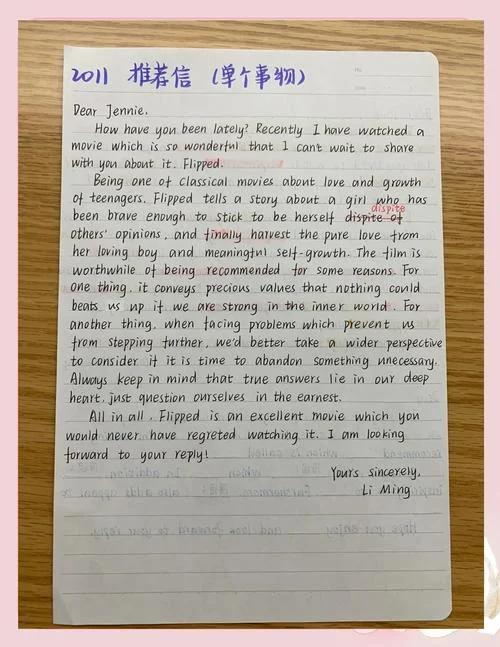 2011 推荐信 (单个事物)
Dear Jennie,
How have you been lately? Recently I have watched a
movie which is so wonderful that I can't wait to share
with you about it. Flipped.
Being one of classical movies about love and growth
of teenagers. Flipped tells a story about a girl who has
dispite
been brave enough to stick to be herself dispite of
others' opinions, and finally harvest the pure love from
her loving boy and meaningful self-growth. The film is
worthwhile of being recommended for some reasons. For
one thing, it conveys precious values that nothing could
beats us up if we are strong in the inner world. For
another thing, when facing problems which prevent us
from stepping further, we'd better take a wider perspective
to consider if it is time to abandon something unecessary.
Always keep in mind that true answers lie in our deep
heart, just question ourselves in the earnest.
All in all, Flipped is an excellent movie which you
would never have regreted watching it. I am looking
forward to your reply!
Yours sincerely,
Li Ming